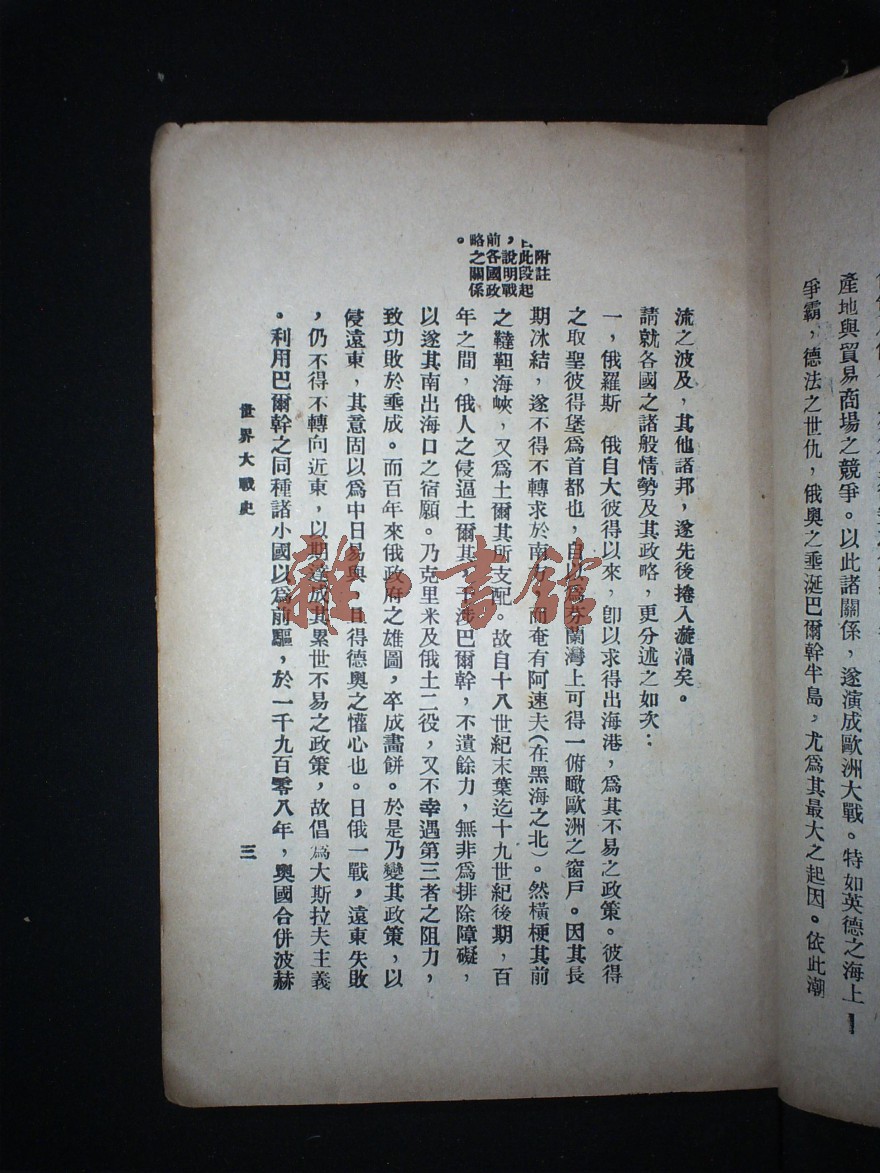 產地與貿易商場之競爭。以此諸關係，遂演成歐洲大戰。特如英德之海上
爭霸，德法之世仇，俄奧之垂涎巴爾幹半島，尤爲其最大之起因。依此潮
流之波及，其他諸邦，遂先後捲入漩渦矣。
請就各國之諸般情勢及其政略，更分述之如次：
附註
此段起
，說明戰
前各國政
略之關係
。
一，俄羅斯　俄自大彼得以來，卽以求得出海港，爲其不易之政策。彼得
之取聖彼得堡爲首都也，自以爲芬蘭灣上可得一俯瞰歐洲之窗戶。因其長
期冰結，遂不得不轉求於南方，而奄有阿速夫（在黑海之北）。然橫梗其前
之韃靼海峽，又爲土爾其所支配。故自十八世紀末葉迄十九世紀後期，百
年之間，俄人之侵逼土爾其，干涉巴爾幹，不遺餘力，無非爲排除障礙，
以遂其南出海口之宿願。乃克里米及俄土二役，又不幸遇第三者之阻力，
致功敗於垂成。而百年來俄政府之雄圖，卒成畫餅。於是乃變其政策，以
侵遠東，其意固以爲中日易與，且得德奧之懽心也。日俄一戰，遠東失敗
，仍不得不轉向近東，以期達成其累世不易之政策，故倡爲大斯拉夫主義
。利用巴爾幹之同種諸小國以爲前驅，於一千九百零八年，奧國合併波赫
世界大戰史
三
雜·書館